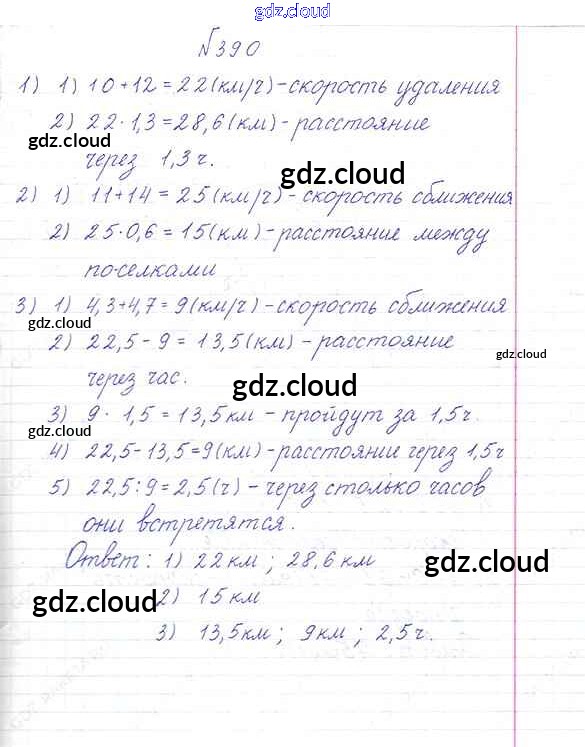 gdz.cloud
№390
1) 1) 10+12=22(км/ч)-скорость удаления
2) 22·1,3=28,6(км)-расстояние
gdz.cloud
через 1,3ч.
gdz.cloud
2) 1) 11+14=25(км/ч)-скорость сближения
2) 25·0,6=15(км)-расстояние между
поселками
3) 1) 4,3+4,7=9(км/ч)-скорость сближения
gdz.cloud
2) 22,5-9=13,5(км)-расстояние
gdz.cloud
через час.
gdz.cloud
3) 9·1,5=13,5км-пройдут за 1,5ч.
gdz.cloud
4) 22,5-13,5=9(км)-расстоянии через 1,5ч
5) 22,5:9=2,5(ч)-через столько часов
они встретятся.
Ответ: 1) 22км; 28,6км
gdz.cloud
gdz.cloud
2) 15км
3) 13,5км; 9км; 2,5ч.